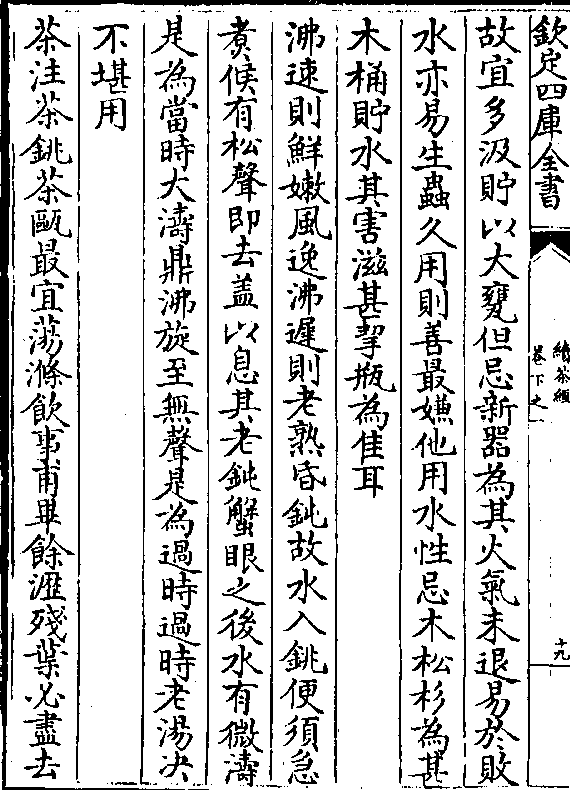 欽定四庫全書
續茶經
卷下之一
十九
故宜多汲貯以大甕但忌新器為其火氣未退易於敗
水亦易生蟲久用則善最嫌他用水性忌木松杉為甚
木桶貯水其害滋甚挈瓶為佳耳
沸速則鮮嫩風逸沸遲則老熟昏鈍故水入銚便須急
煑候有松聲即去盖以息其老鈍蟹眼之後水有微濤
是為當時大濤鼎沸旋至無聲是為過時過時老湯决
不堪用
茶注茶銚茶甌最宜蕩滌飲事甫畢餘瀝殘葉必盡去